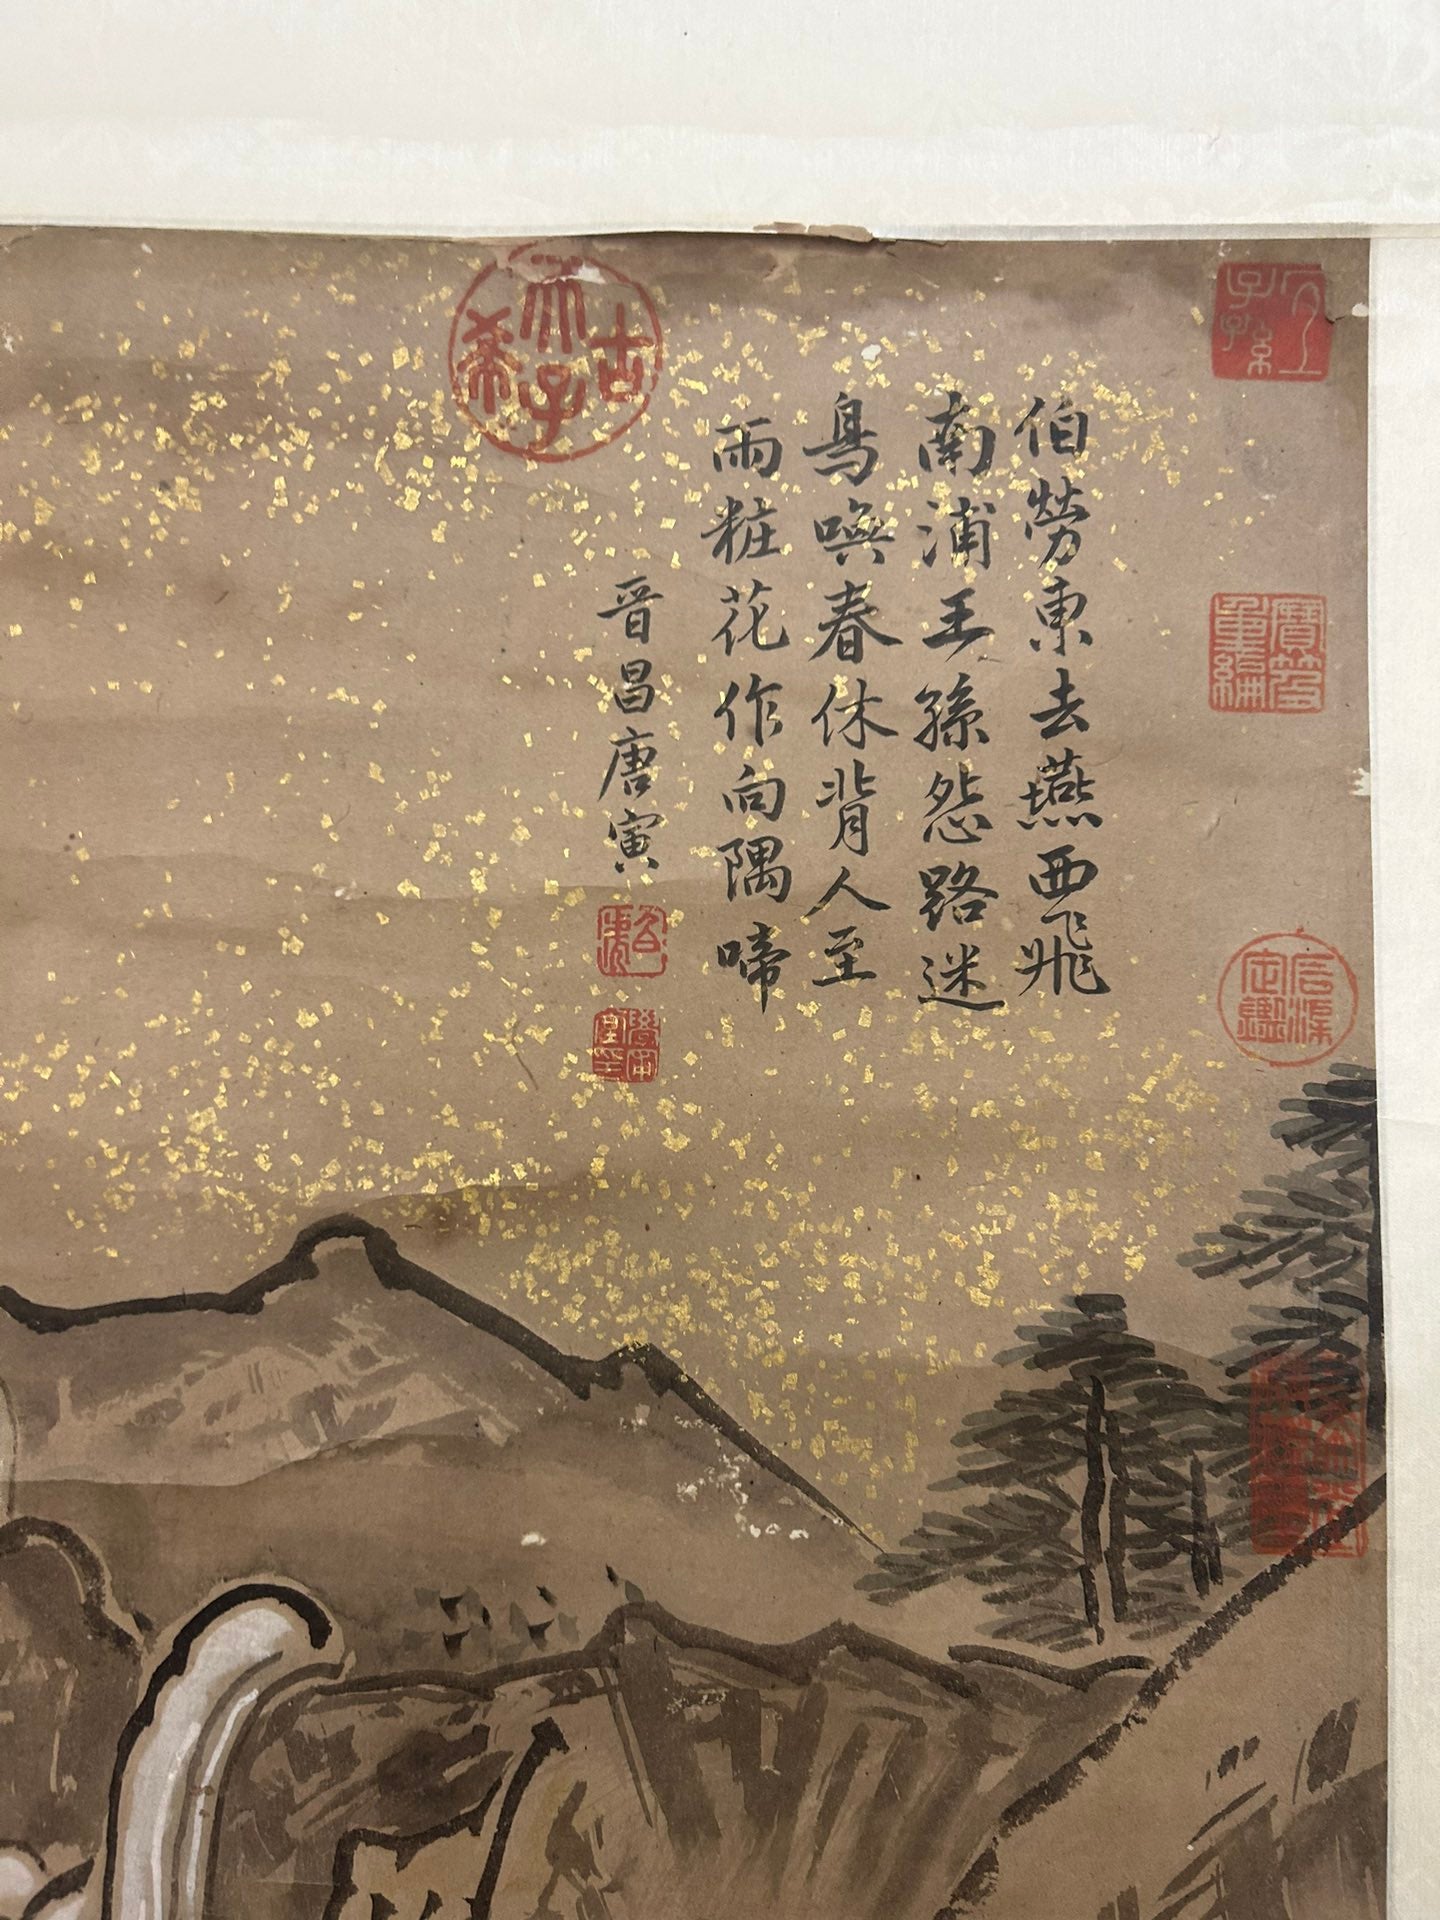 伯勞東去燕西飛
南浦王孫怨路迷
鳥喚春休背人至
雨粧花作向隅啼
晉昌唐寅
古希天子
子孫
寶笈重編
石渠定鑑